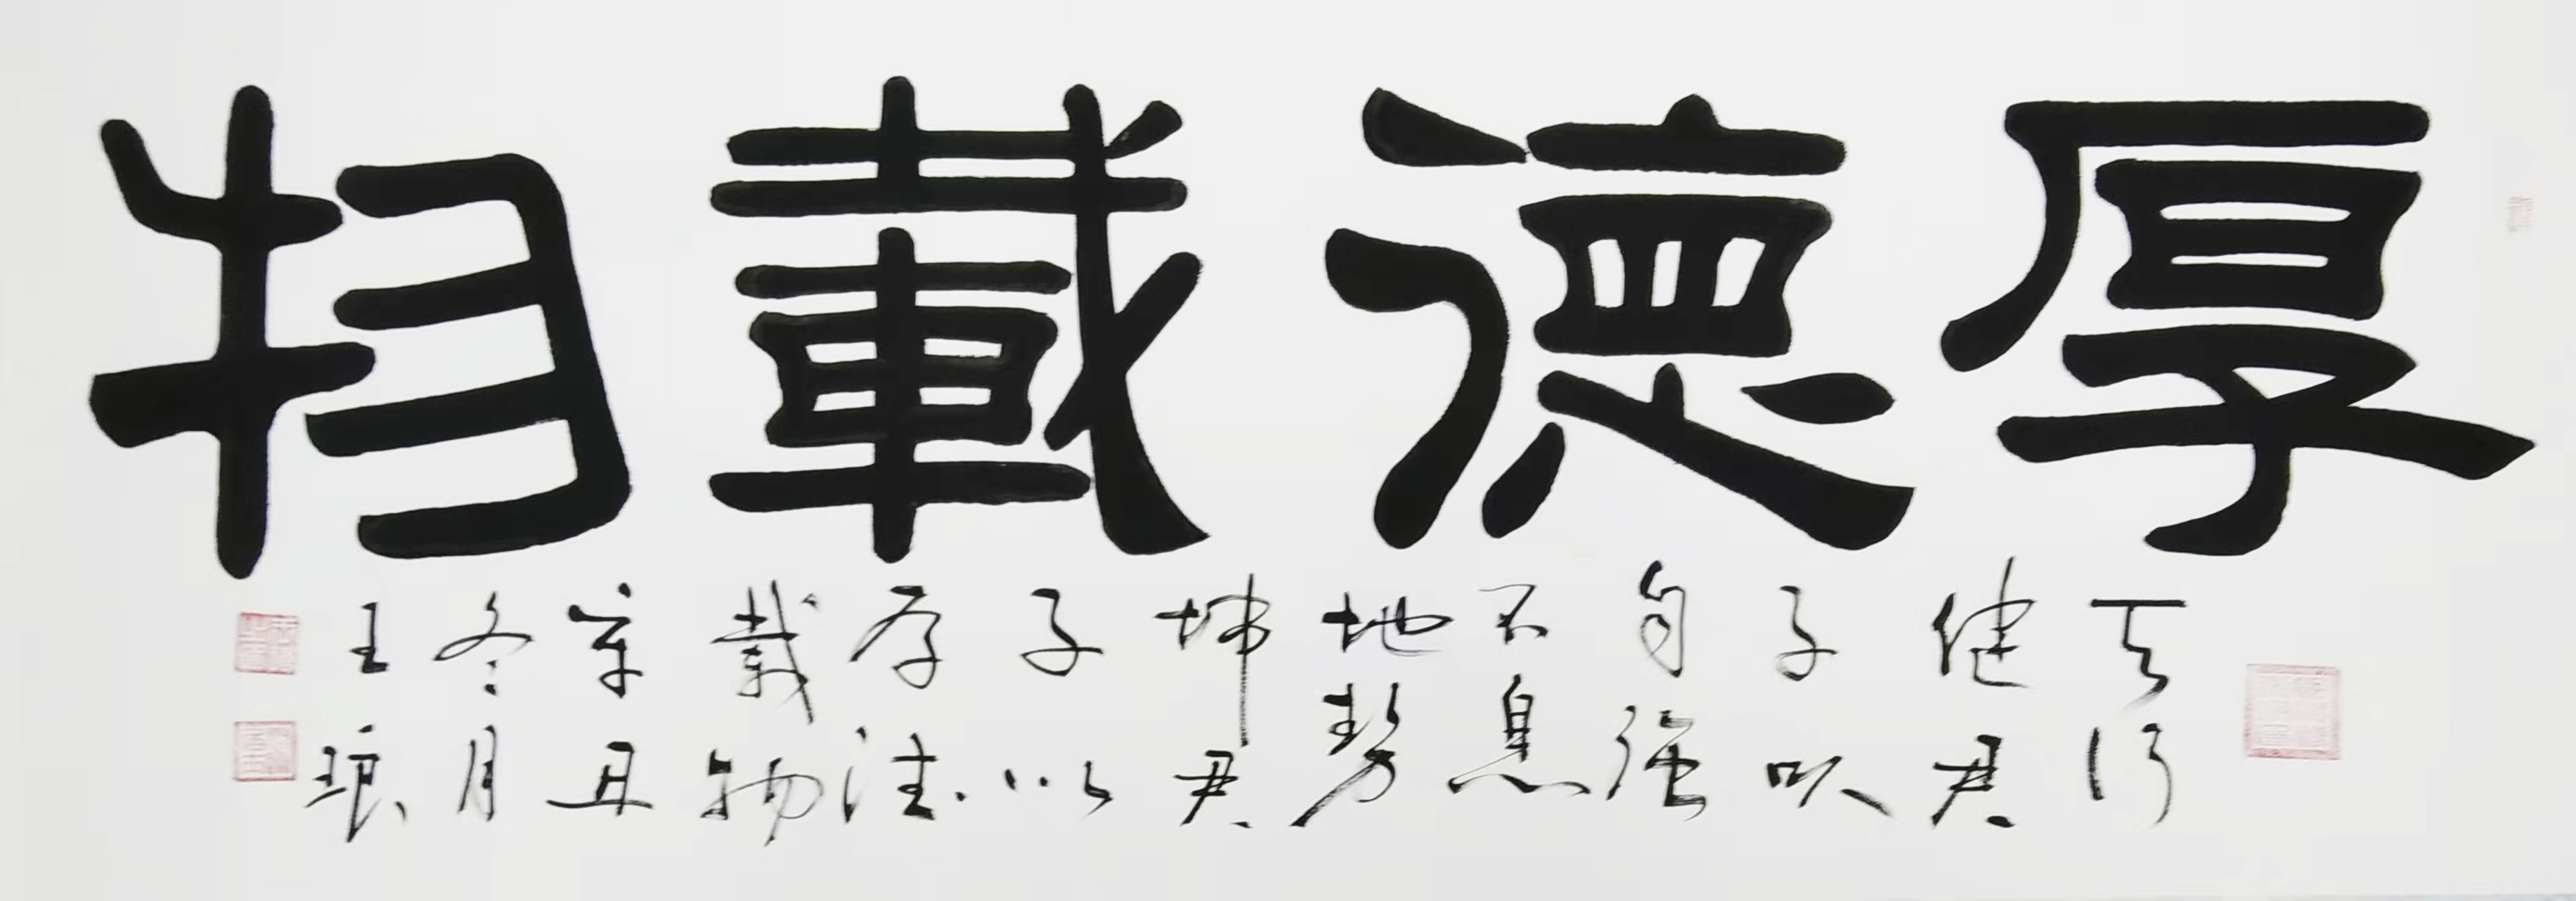 厚德載物
天行
健君
子以
自強
不息
地勢
坤君
子以
厚德
載物
辛丑
冬月
王琅